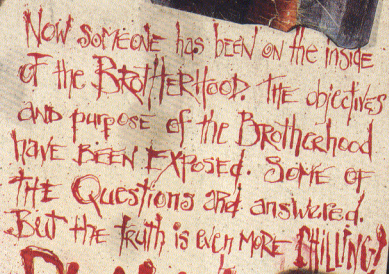 Now someone has been on the inside
of the Brotherhood. The objectives
and purpose of the Brotherhood
have been exposed. Some of
the Questions and answered.
But the truth is even more chilling!